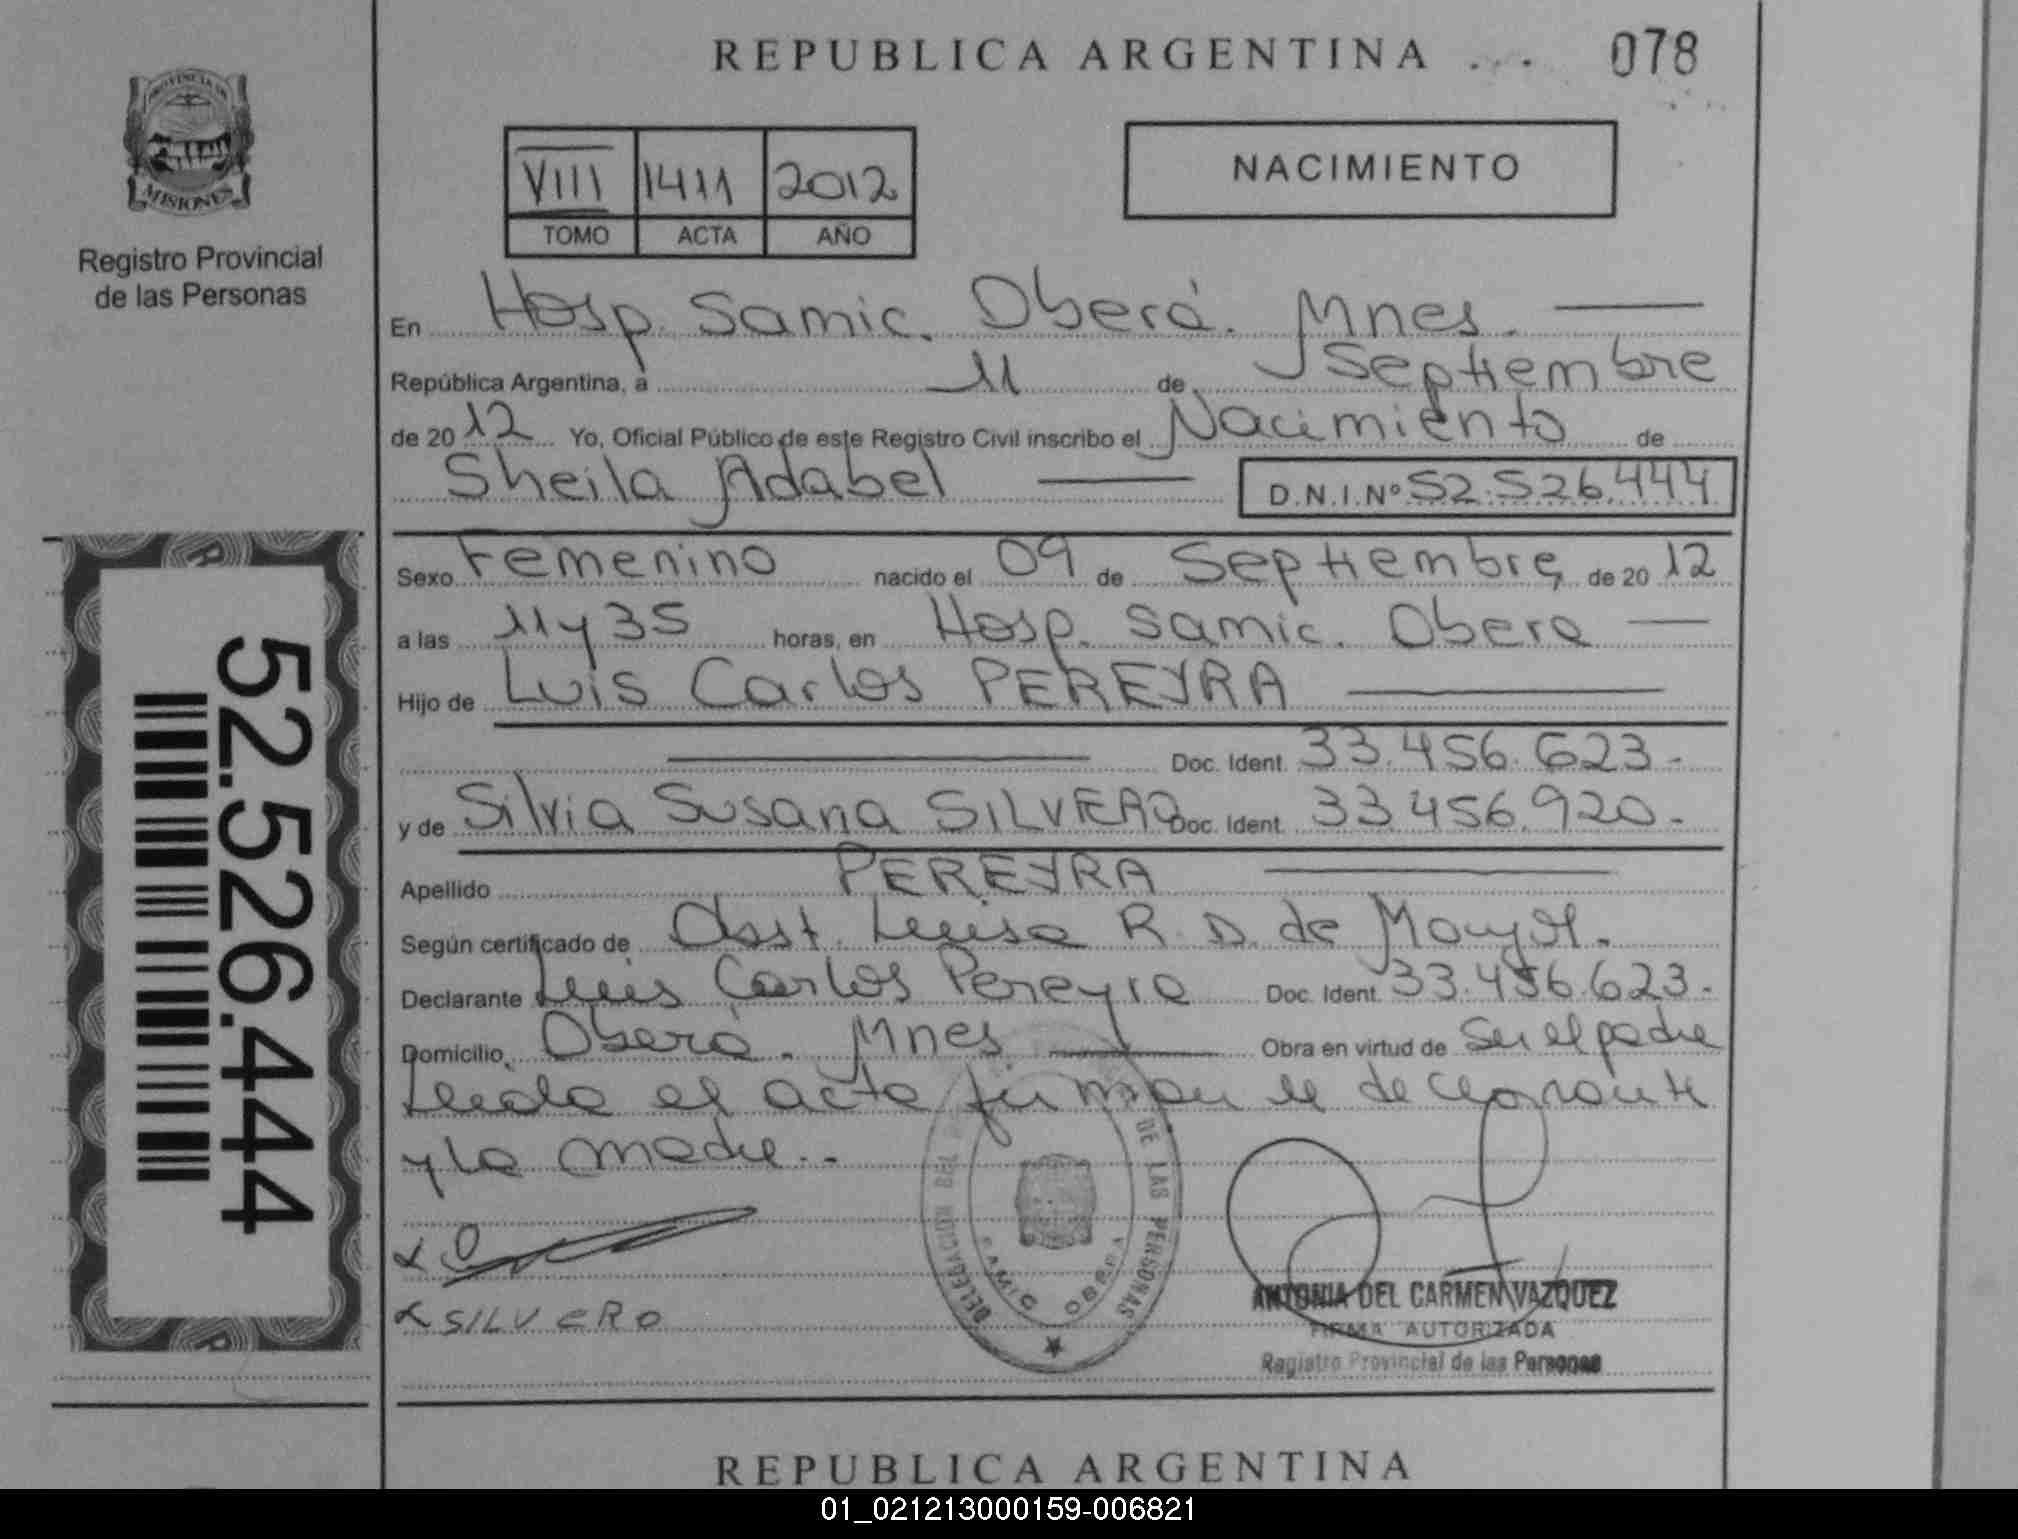 REPUBLICA ARGENTINA
078
PROVINCIA DE
MISIONES
Registro Provincial
de las Personas
VIII 1411 2012
TOMO ACTA AÑO
NACIMIENTO
En Hosp. Samic. Oberá. Mnes.
República Argentina, a 11 de Septiembre
de 2012 Yo, Oficial Público de este Registro Civil inscribo el Nacimiento de
Sheila Adabel D.N.I.Nº 52.526.444
Sexo Femenino nacido el 09 de Septiembre de 2012
a las 11 y 35 horas, en Hosp. Samic. Obera
Hijo de Luis Carlos PEREYRA
Doc. Ident. 33.456.623.-
y de Silvia Susana SILVERO Doc. Ident. 33.456.920.-
Apellido PEREYRA
Según certificado de Obst. Luisa R. D. de Mayol.
Declarante Luis Carlos Pereyra Doc. Ident. 33.456.623.-
Domicilio Oberá. Mnes Obra en virtud de Ser el padre
Leida el acta firman el declarante
y la madre..
SILVERO
DELEGACION DEL DE LAS PERSONAS
SAMIC OBERA
ANTONIA DEL CARMEN VAZQUEZ
FIRMA AUTORIZADA
Registro Provincial de las Personas
52.526.444
REPUBLICA ARGENTINA
01_021213000159-006821